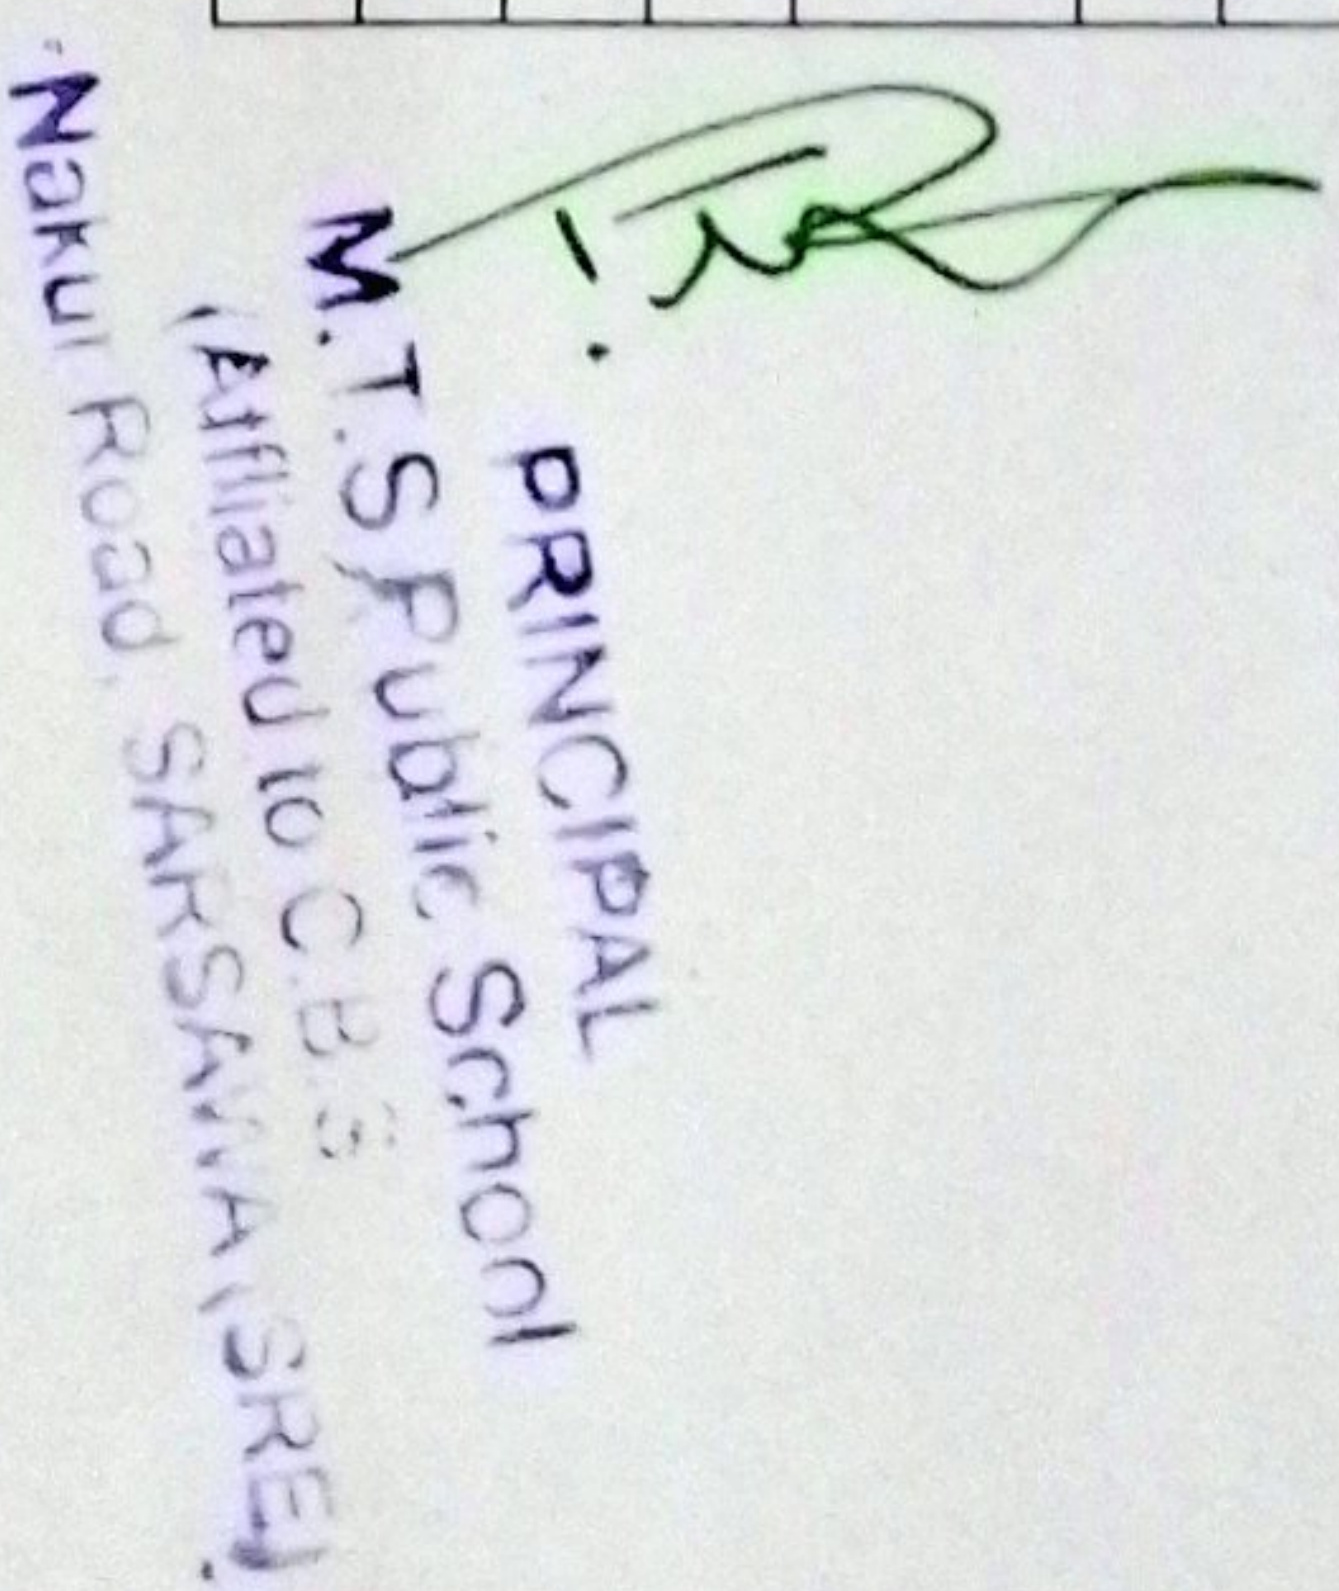 PRINCIPAL
M.T.S Public School
(Affiliated to C.B.S
Nakur Road, SARSAWA (SRE)